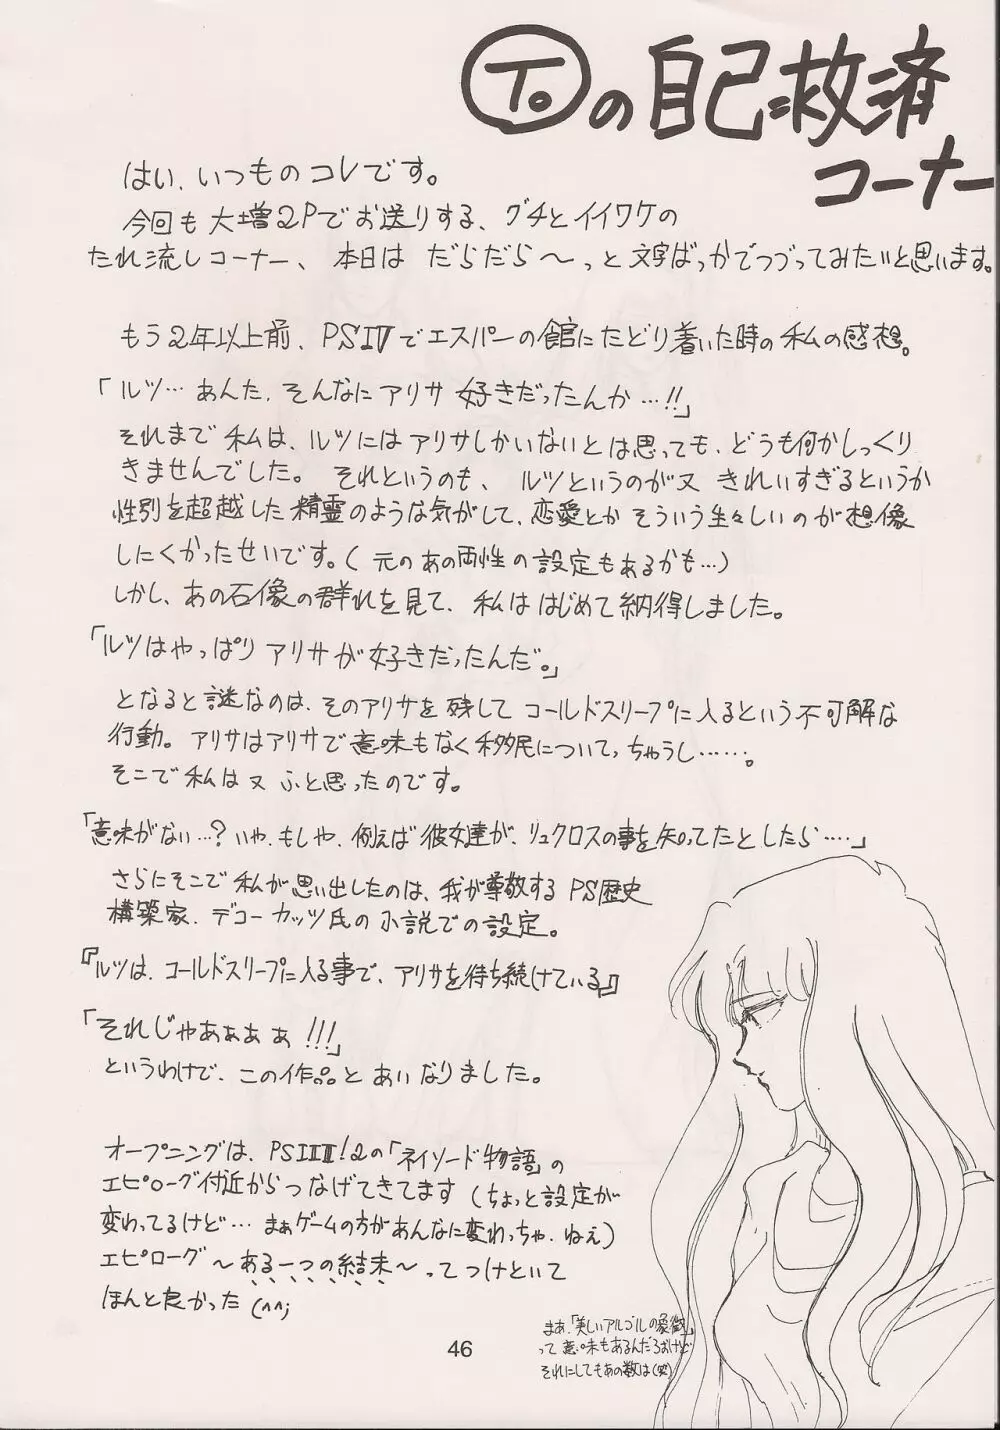 Toの自己救済
コーナー
はい、いつものコレです。
今回も大増2Pでお送りする、グチとイイワケの
たれ流しコーナー、本日は だらだら〜っと文字ばっかでつづってみたいと思います。
もう2年以上前、PSIVでエスパーの館にたどり着いた時の私の感想。
「ルツ…あんた、そんなにアリサ好きだったんか…!!」
それまで私は、ルツにはアリサしかいないとは思っても、どうも何かしっくり
きませんでした。それというのも、ルツというのが又きれいすぎるというか
性別を超越した精霊のような気がして、恋愛とかそういう生々しいのが想像
しにくかったせいです。(元のあの両性の設定もあるかも…)
しかし、あの石像の群れを見て、私ははじめて納得しました。
「ルツはやっぱりアリサが好きだったんだ。」
となると謎なのは、そのアリサを残してコールドスリープに入るという不可解な
行動。アリサはアリサで意味もなく移民についてっちゃうし……。
そこで私は又ふと思ったのです。
「意味がない…?いや、もしや、例えば彼女達が、リュクロスの事を知ってたとしたら‥‥」
さらにそこで私が思い出したのは、我が尊敬するPS歴史
構築家、デコーカッツ氏の小説での設定。
『ルツは、コールドスリープに入る事で、アリサを待ち続けている』
「それじゃあぁぁぁ!!!」
というわけで、この作品とあいなりました。
オープニングは、PSIIII!2の「ネイソード物語」の
エピローグ付近からつなげてきてます(ちょっと設定が
変わってるけど…まぁゲームの方があんなに変わっちゃ、ねぇ)
エピローグ〜ある一つの結末〜ってつけといて
ほんと良かった(^^;
まあ、「美しいアルゴルの象徴」
って意味もあるんだろおけど
それにしてもあの数は(笑)
46